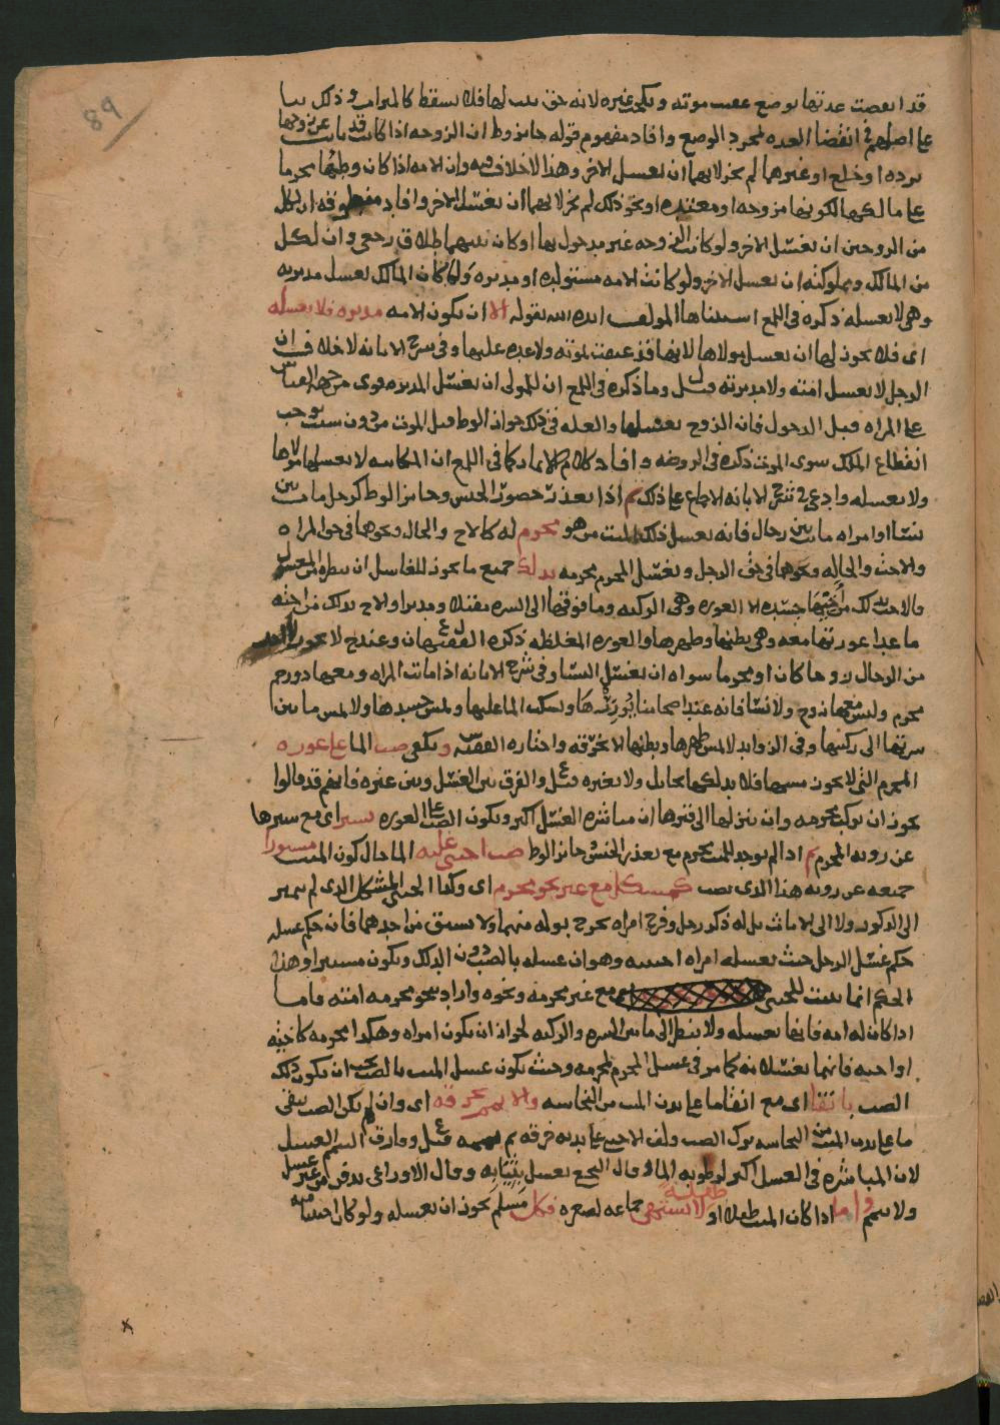 قد انقضت عدتها بوضع عقيب موته ونكحت غيره لانه حق ثبت لها فلا يسقط كالميراث وذلك بنا
على اصلهم في انقضا العده بمجرد الوضع وافاد مفهوم قوله جايز وطئ ان الزوجه اذا كانت قد بانت عن زوجها
برده او خلع او غيرهما لم يجز لايهما ان يغسل الاخر وهذا لا خلاف فيه وان الامه اذا كان وطئها محرما
على مالكها لكونها مزوجه او معتده او نحو ذلك لم يجز لايهما ان يغسل الاخر وافاد منطوقه ان لكل
من الزوجين ان يغسل الاخر ولو كانت الزوجه غير مدخول بها او كان بينهما طلاق رجعي وان لكل
من المالك ومملوكته ان يغسل الاخر ولو كانت الامه مستولده او مدبره ولما كان المالك يغسل مدبرته
وهي لا تغسله ذكره في اللمع استثناها المولف ايده الله بقوله الا ان تكون الامه مدبره فلا تغسله
اى فلا يجوز لها ان تغسل مولاها لانها قد عتقت بموته ولا عده عليها وفي شرح الابانه لا خلاف ان
الرجل لا يغسل امته ولا مدبرته قيل وما ذكره في اللمع ان للمولى ان يغسل المدبره قوى من جهه القياس
على المراه قبل الدخول فان الزوج يغسلها والعله في ذلك جواز الوطء قبل الموت من دون سبب يوجب
انقطاع الملك سوى الموت ذكره في الروضه وافاد كلام الامام كما في اللمع ان المكاتبه لا يغسلها مولاها
ولا تغسله وادعى في شرح الابانه الاجماع على ذلك ثم اذا تعذر حضور الجنس وجايز الوطء كرجل مات بين
نسا او امراه ماتت بين رجال فانه يغسل ذلك الميت من هو محرم له كالاخ والخال ونحوهما في حق المراه
والاخت والخاله ونحوهما في حق الرجل ويغسل المحرم محرمه بدلك جميع ما يجوز للغاسل ان ينظره من المغسول
فالاخت تدلك من اخيها جسده الا العوره وهي الركبه وما فوقها الى السره مقبلا ومدبرا والاخ يدلك من اخته
ما عدا عورتها معه وهي بطنها وظهرها والعوره المغلظه ذكره الفقيهان وعند لا يجوز لاحد
من الرجال زوجا كان او محرما سواه ان يغسل النسا وفي شرح الابانه اذا ماتت المراه ومعها ذو رحم
محرم وليس معها زوج ولا نسا فانه عند اصحابنا يوزرها ويسكب الما عليها ويلمس جسدها ولا يلمس ما بين
سرتها الى ركبتها وفي الزوايد لا يلمس ظهرها وبطنها الا بخرقه واختاره الفقيه ويكفي صب الما على عوره
المحرم التي لا يجوز مسها فلا يدلكها بحايل ولا بغيره قيل والفرق بين الغسل وبين غيره فانهم قد قالوا
يجوز ان يركب محرمه وان ينزلها الى قبرها ان مباشره الغسل اكثر ويكون الصب على العوره بستر اى مع سترها
عن رويه المحرم ثم اذا لم يوجد للميت محرم مع تعذر الجنس وجايز الوطء صب اجنبي عليه الما حال كون الميت مستورا
جميعه عن رويه هذا الذى يصب كخنثى مشكل مع غير نحو محرم اى وكذا الخنثى المشكل الذى لم يتميز
الى الذكور ولا الى الاناث بل له ذكر رجل وفرج امراه يخرج بوله منهما ولا يسبق من احدهما فان حكم غسله
حكم غسل الرجل حيث تغسله امراه اجنبيه وهو ان غسله بالصب دون الدلك ويكون مستترا وهذا
الحكم انما يثبت للخنثى مع غير محرمه ونحوه واراد بنحو محرمه امته فاما
اذا كان له امه فانها تغسله ولا تنظر الى ما بين السره والركبه لجواز ان يكون امراه وهكذا محرمه كاخيه
او اخته فانهما يغسلانه كما مر في غسل المحرم لمحرمه وحيث يكون غسل الميت بالصب يجب ان يكون ذلك
الصب بانقا اى مع انقا ما على بدن الميت من النجاسه والا يمم بخرقه اى وان لم يكن الصب ينقى
ما على بدن الميت من النجاسه ترك الصب ولف الاجنبى على يده خرقه ثم ييممه قيل وفارق التيمم الغسل
لان المباشره في الغسل اكثر لرطوبه الما وقال النخعي يغسل بثيابه وقال الاوزاعي يدفن من غير غسل
ولا تيمم واما اذا كان الميت طفلا او طفله لا تشتهى جماعه لصغره فكل مسلم يجوز ان يغسله ولو كان اجنبيا منه
89